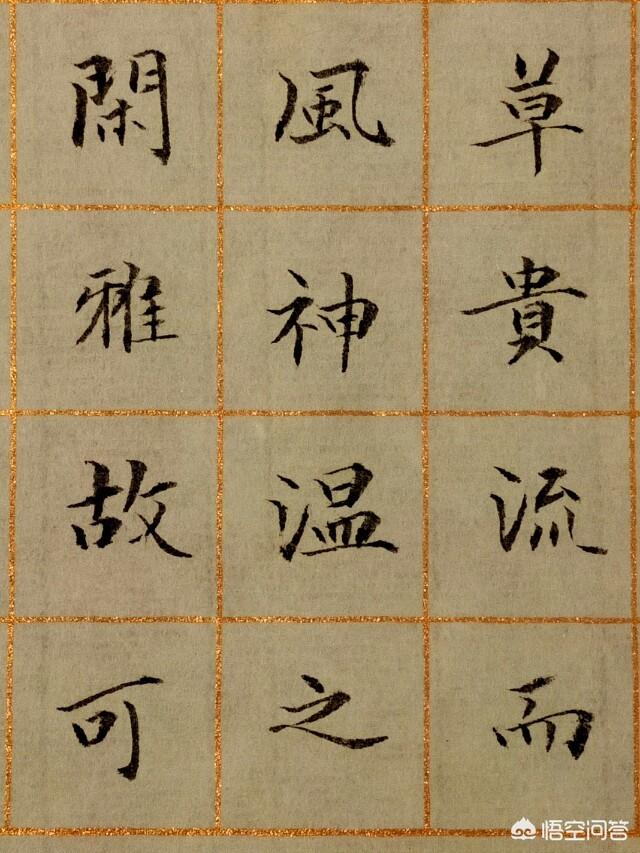 草貴流而
風神温之
閑雅故可
悟空问答